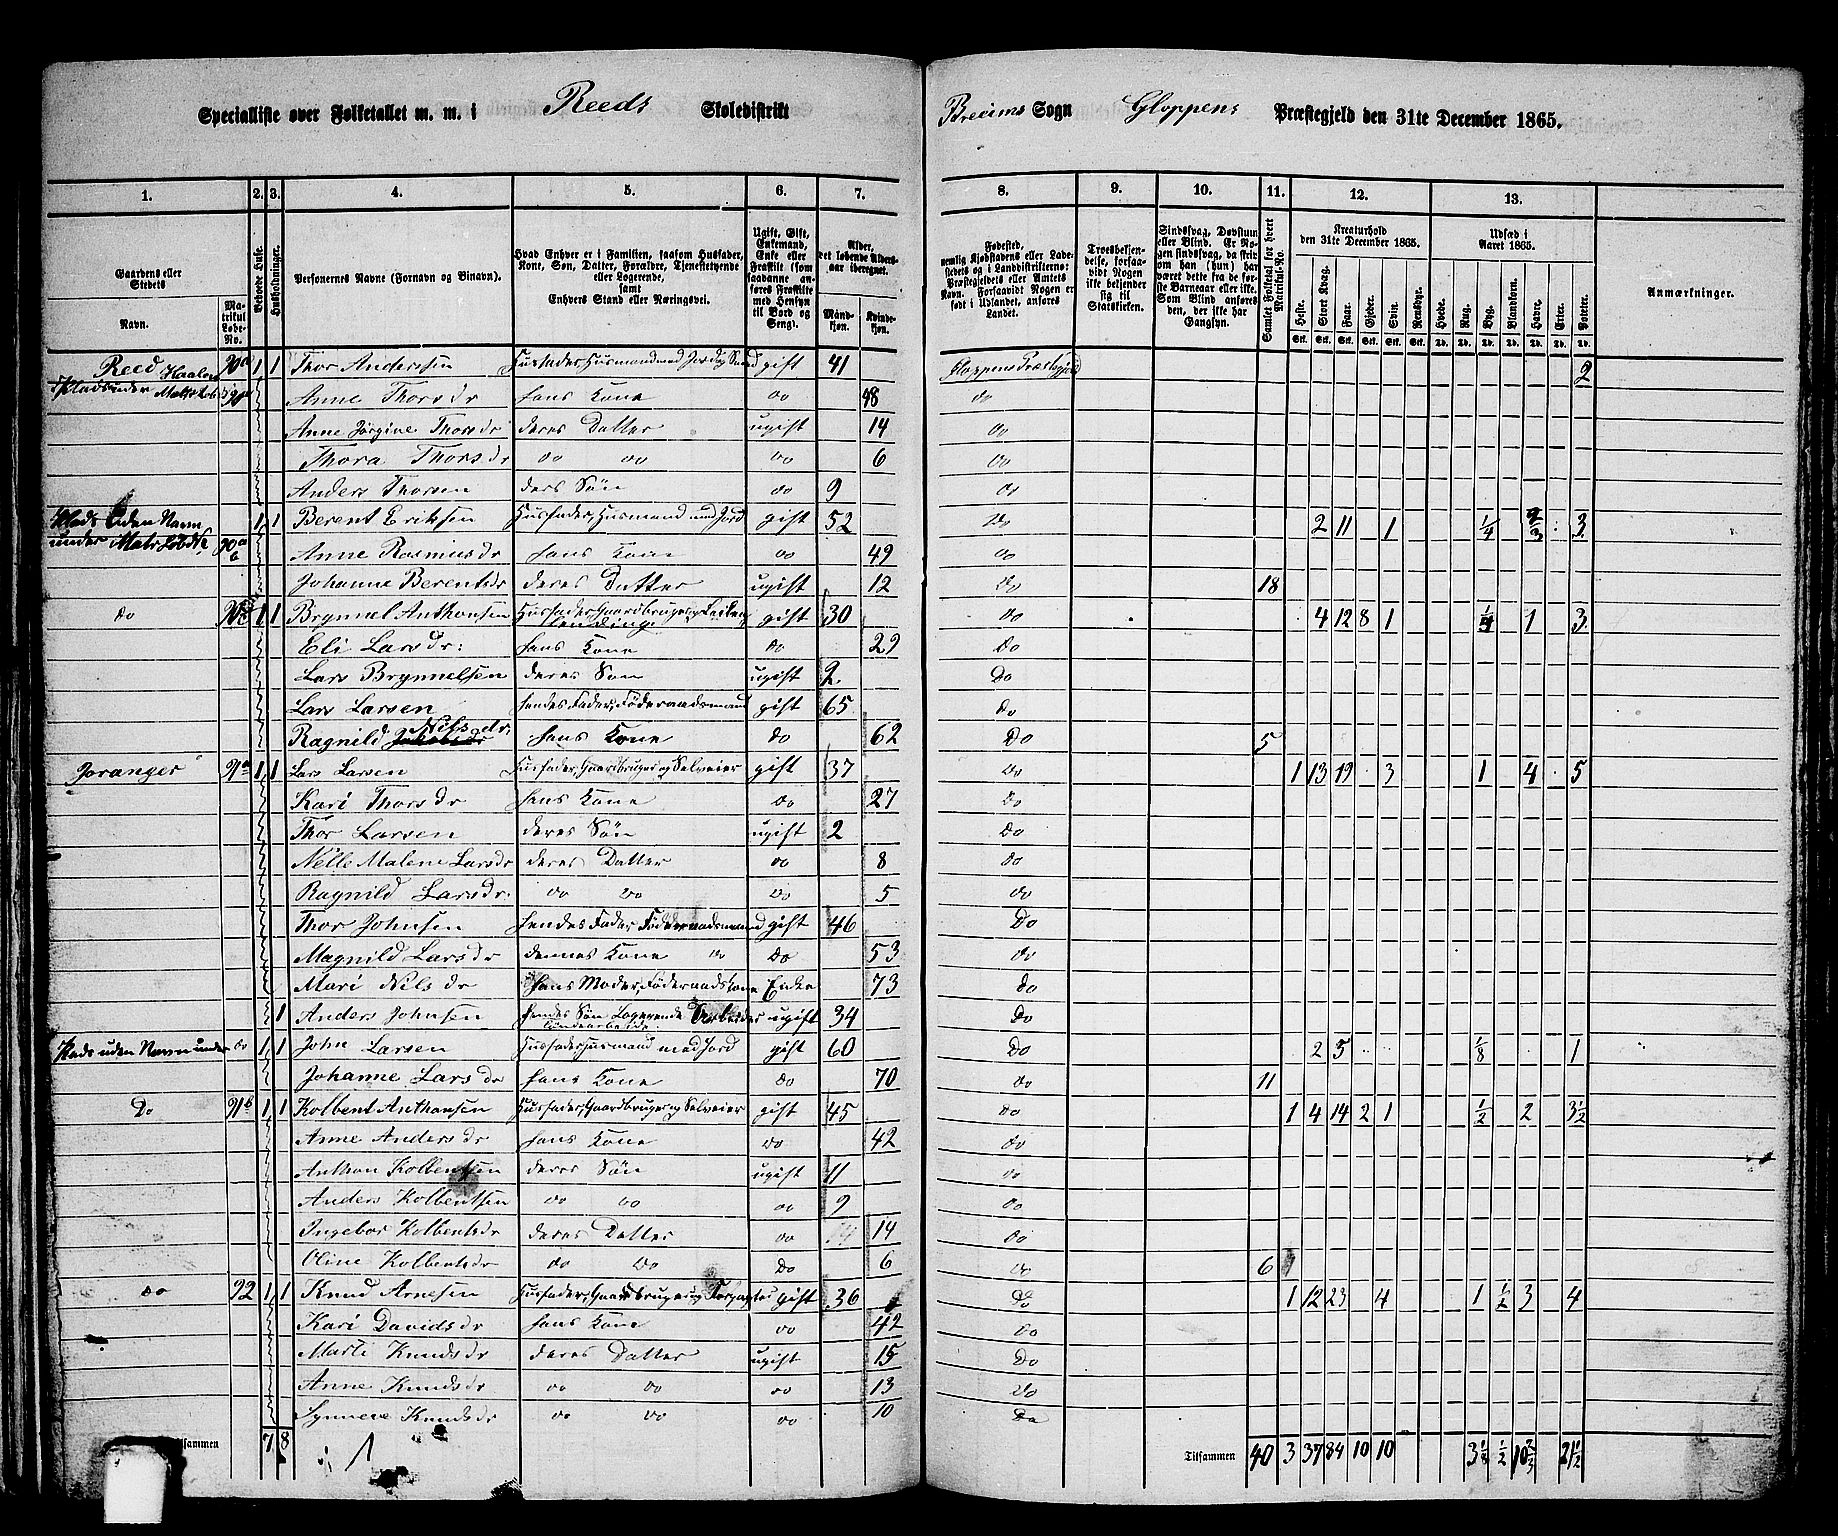 Specialliste over Folketallet m. m. i Reeds Skoledistrikt Breims Sogn Gloppens Præstegjeld den 31te December 1865.
1. 2. 3. 4. 5. 6. 7. 8. 9. 10. 11. 12. 13.
Gaardens eller Stedets Navn. Matrikul Løbe-No. Beboede Huse. Husholdninger. Personernes Navne (Fornavn og Binavn). Hvad Enhver er i Familien, saasom Husfader, Kone, Søn, Datter, Forældre, Tjenestetyende eller Logerende, samt Enhvers Stand eller Næringsvei. Ugift, Gift, Enkemand, Enke eller Fraskilte (saadanne anføres Fraskilte med Hensyn til Bord og Seng). Alder, det løbende Alders-aar iberegnet. Mandkjøn. Kvindekjøn.
Fødested, nemlig Kjøbstadens eller Ladestedets og i Landdistrikterne: Præstegjeldets eller Amtets Navn. Forsaavidt Nogen er født i Udlandet, anføres Landet. Troesbekjendelse, forsaavidt Nogen ikke bekjender sig til Statskirken. Sindssvag, Døvstum eller Blind. Er Nogen sindssvag, da skrives om han (hun) har været dette fra de første Barneaar eller ikke. Som Blind anføres den, der ikke har Gangsyn. Samlet Folketal for hvert Matrikul-No. Kreaturhold den 31te December 1865. Udsæd i Aaret 1865. Anmærkninger.
Heste. Stort Kvæg. Faar. Gjeder. Svin. Rensdyr. Hvede. Rug. Byg. Blandkorn. Havre. Erter. Poteter.
Reed 90a 1 1 Thor Andersen Husfader, Husmand med Jord gift 41 Gloppens Præstegjeld 2
Anne Thorsdr hans Kone do 48 do
Anne Jørgine Thorsdr deres Datter ugift 14 do
Thora Thorsdr do do do 6 do
Anders Thorsen deres Søn do 9 do
Plads uden Navn 1 1 Berent Eriksen Husfader, Husmand med Jord gift 52 Do 2 11 1 1/4 2/3 3
under Anne Rasmusdr hans Kone do 49 do
Johanne Berentsdr deres Datter ugift 12 Do 18
do 1 1 Brynnel Anthonsen Husfader, Gaardbruger gift 30 do 4 12 8 1 1 3
Eli Larsdr: hans Kone do 29 Do
Lars Brynnelsen deres Søn ugift 2 Do
Lars Larsen hendes Fader, Føderaadsmand gift 65 Do
Ragnild Nilsdr. hans Kone do 62 Do 5
Joranger 91a 1 1 Lars Larsen Husfader, Gaardbruger og Selveier gift 37 Do 1 13 19 3 1 4 5
Kari Thorsdr hans Kone do 27 Do
Thor Larsen deres Søn ugift 2 Do
Nelle Malene Larsdr deres Datter do 8 do
Ragnild Larsdr. do do do 5 do
Thor Johnsen hendes Fader Føderaadsmand gift 46 Do
Magnild Larsdr dennes Kone do Do 53 do
Mari Nilsdr hans Moder, Føderaadskone Enke 73 Do
1 Anders Johnsen hendes Søn Logerende Arbeider ugift 34 Do
Plads uden Navn under do 1 1 John Larsen Husfader Husmand med Jord gift 60 Do 2 5 1/8 1
Johanne Larsdr hans Kone do 70 do 11
Do 91b 1 1 Kolbent Anthonsen Husfader, Gaardbruger og Selveier gift 45 do 1 4 14 2 1 1/2 2 3 1/2
Anne Andersdr hans Kone do 42 do
Anthon Kolbentsen deres Søn ugift 11 do
Anders Kolbentsen do do do 9 do
Ingebor Kolbentsdr deres Datter do 14 do
Oline Kolbentsdr do do Do 6 do 6
do 92 1 1 Knud Arnesen Husfader, Gaardbruger og Forpagter gift 36 Do 1 12 23 4 1 1/2 3 4
Kari Davidsdr hans Kone do 42 do
Marte Knudsdr deres Datter ugift 15 Do
Anne Knudsdr do do do 13 Do
Synneve Knudsdr do do do 10 Do
7 8 Tilsammen 40 3 37 84 10 10 3 1/8 1/2 10 2/3 21 1/2